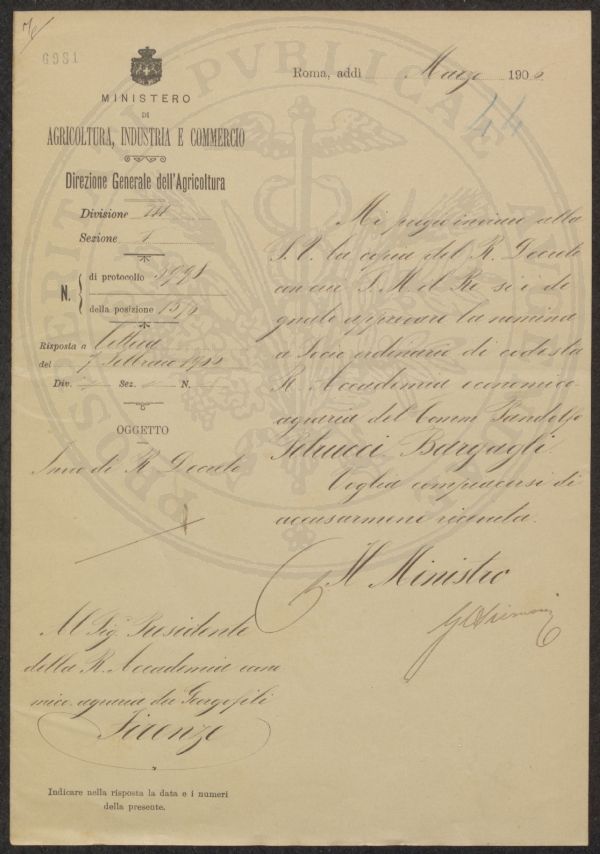 Roma, addì Marzo 190
44
MINISTERO
DI
AGRICOLTURA, INDUSTRIA E COMMERCIO
Direzione Generale dell'Agricoltura
Divisione
Sezione 1
N.
di protocollo
della posizione
Risposta a
del 7 Febbraio
Div. Sez. N.
OGGETTO
Invio di R. Decreto
Mi pregio inviare alla
S. V. la copia del R. Decreto
con cui S. M. il Re si è de
gnato approvare la nomina
a Socio ordinario di codesta
R. Accademia economico-
agraria del Comm. Pandolfo
Petrucci Bargagli.
Voglia compiacersi di
accusarmene ricevuta.
Il Ministro
Al Sig. Presidente
della R. Accademia econo
mico-agraria dei Georgofili
Firenze
Indicare nella risposta la data e i numeri
della presente.
PROSPERITATI PVBLICAE